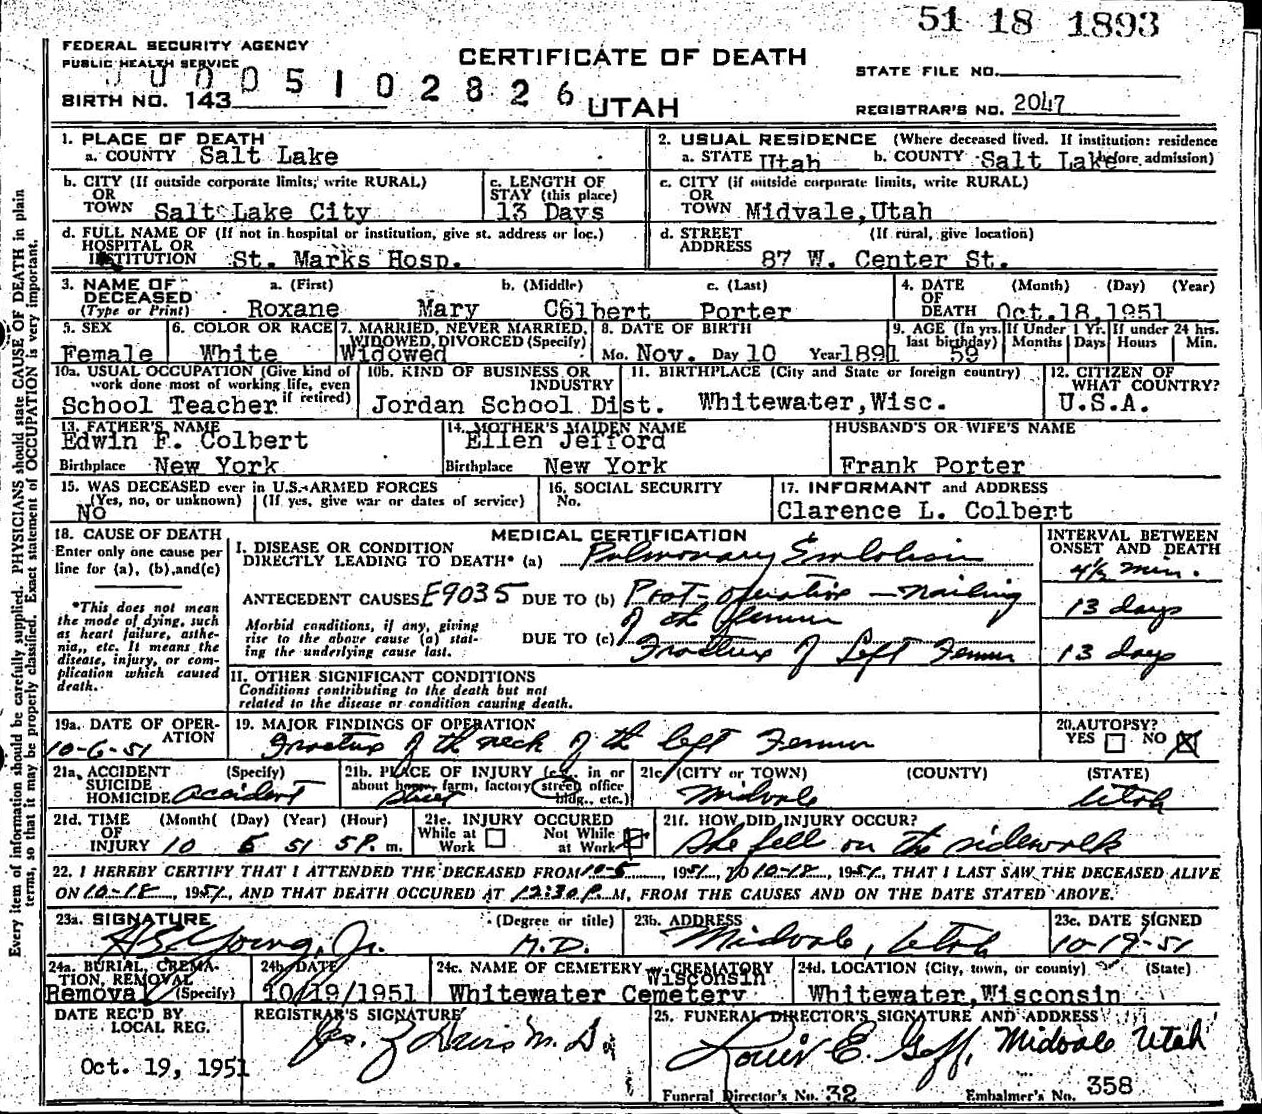 51 18 1893
FEDERAL SECURITY AGENCY
PUBLIC HEALTH SERVICE
CERTIFICATE OF DEATH
STATE FILE NO.
0005102826
BIRTH NO. 143
UTAH
REGISTRAR'S NO. 2047
1. PLACE OF DEATH
a. COUNTY Salt Lake
2. USUAL RESIDENCE (Where deceased lived. If institution: residence before admission)
a. STATE Utah b. COUNTY Salt Lake
b. CITY (If outside corporate limits, write RURAL)
OR
TOWN Salt Lake City
c. LENGTH OF
STAY (this place)
13 Days
c. CITY (if outside corporate limits, write RURAL)
OR
TOWN Midvale,Utah
d. FULL NAME OF (If not in hospital or institution, give st. address or loc.)
HOSPITAL OR
INSTITUTION St. Marks Hosp.
d. STREET (If rural, give location)
ADDRESS
87 W. Center St.
3. NAME OF
DECEASED
(Type or Print)
a. (First) b. (Middle) c. (Last)
Roxane Mary Colbert Porter
4. DATE (Month) (Day) (Year)
OF
DEATH Oct.18,1951
5. SEX
Female
6. COLOR OR RACE
White
7. MARRIED, NEVER MARRIED,
WIDOWED, DIVORCED (Specify)
Widowed
8. DATE OF BIRTH
Mo. Nov. Day 10 Year 1891
9. AGE (In yrs.
last birthday)
59
If Under 1 Yr.
Months Days
If under 24 hrs.
Hours Min.
10a. USUAL OCCUPATION (Give kind of
work done most of working life, even
if retired)
School Teacher
10b. KIND OF BUSINESS OR
INDUSTRY
Jordan School Dist.
11. BIRTHPLACE (City and State or foreign country)
Whitewater,Wisc.
12. CITIZEN OF
WHAT COUNTRY?
U.S.A.
13. FATHER'S NAME
Edwin F. Colbert
Birthplace New York
14. MOTHER'S MAIDEN NAME
Ellen Jefford
Birthplace New York
HUSBAND'S OR WIFE'S NAME
Frank Porter
15. WAS DECEASED ever in U.S. ARMED FORCES
(Yes, no, or unknown) (If yes, give war or dates of service)
No
16. SOCIAL SECURITY
No.
17. INFORMANT and ADDRESS
Clarence L. Colbert
18. CAUSE OF DEATH
Enter only one cause per
line for (a), (b), and (c)
*This does not mean
the mode of dying, such
as heart failure, asthe-
nia,, etc. It means the
disease, injury, or com-
plication which caused
death.
MEDICAL CERTIFICATION
I. DISEASE OR CONDITION
DIRECTLY LEADING TO DEATH* (a) Pulmonary Embolism
ANTECEDENT CAUSES E9035 DUE TO (b) Post-operative - nailing
of the femur
Morbid conditions, if any, giving
rise to the above cause (a) stat-
ing the underlying cause last.
DUE TO (c) Fracture of Left Femur
INTERVAL BETWEEN
ONSET AND DEATH
4½ min.
13 days
13 days
II. OTHER SIGNIFICANT CONDITIONS
Conditions contributing to the death but not
related to the disease or condition causing death.
19a. DATE OF OPER-
ATION
10-6-51
19. MAJOR FINDINGS OF OPERATION
Fracture of the neck of the left Femur
20. AUTOPSY?
YES NO X
21a. ACCIDENT (Specify)
SUICIDE
HOMICIDE Accident
21b. PLACE OF INJURY (e.g., in or
about home, farm, factory, street, office
bldg., etc.)
Street
21c. (CITY or TOWN) (COUNTY) (STATE)
Midvale Utah
21d. TIME (Month) (Day) (Year) (Hour)
OF
INJURY 10 5 51 5P. m.
21e. INJURY OCCURED
While at Work Not While at Work
21f. HOW DID INJURY OCCUR?
She fell on the sidewalk
22. I HEREBY CERTIFY THAT I ATTENDED THE DECEASED FROM 10-5, 1951, TO 10-18, 1951, THAT I LAST SAW THE DECEASED ALIVE
ON 10-18, 1951, AND THAT DEATH OCCURED AT 12:30 P.M, FROM THE CAUSES AND ON THE DATE STATED ABOVE.
23a. SIGNATURE (Degree or title)
Young, Jr. M.D.
23b. ADDRESS
Midvale, Utah
23c. DATE SIGNED
10-19-51
24a. BURIAL, CREMA-
TION, REMOVAL
(Specify)
Removal
24b. DATE
10/19/1951
24c. NAME OF CEMETERY or CREMATORY
Wisconsin
Whitewater Cemetery
24d. LOCATION (City, town, or county) (State)
Whitewater,Wisconsin
DATE REC'D BY
LOCAL REG.
Oct. 19, 1951
REGISTRAR'S SIGNATURE
25. FUNERAL DIRECTOR'S SIGNATURE AND ADDRESS
Louis E. Goff, Midvale Utah
Funeral Director's No. 32 Embalmer's No. 358
Every item of information should be carefully supplied. PHYSICIANS should state CAUSE OF DEATH in plain
terms, so that it may be properly classified. Exact statement of OCCUPATION is very important.